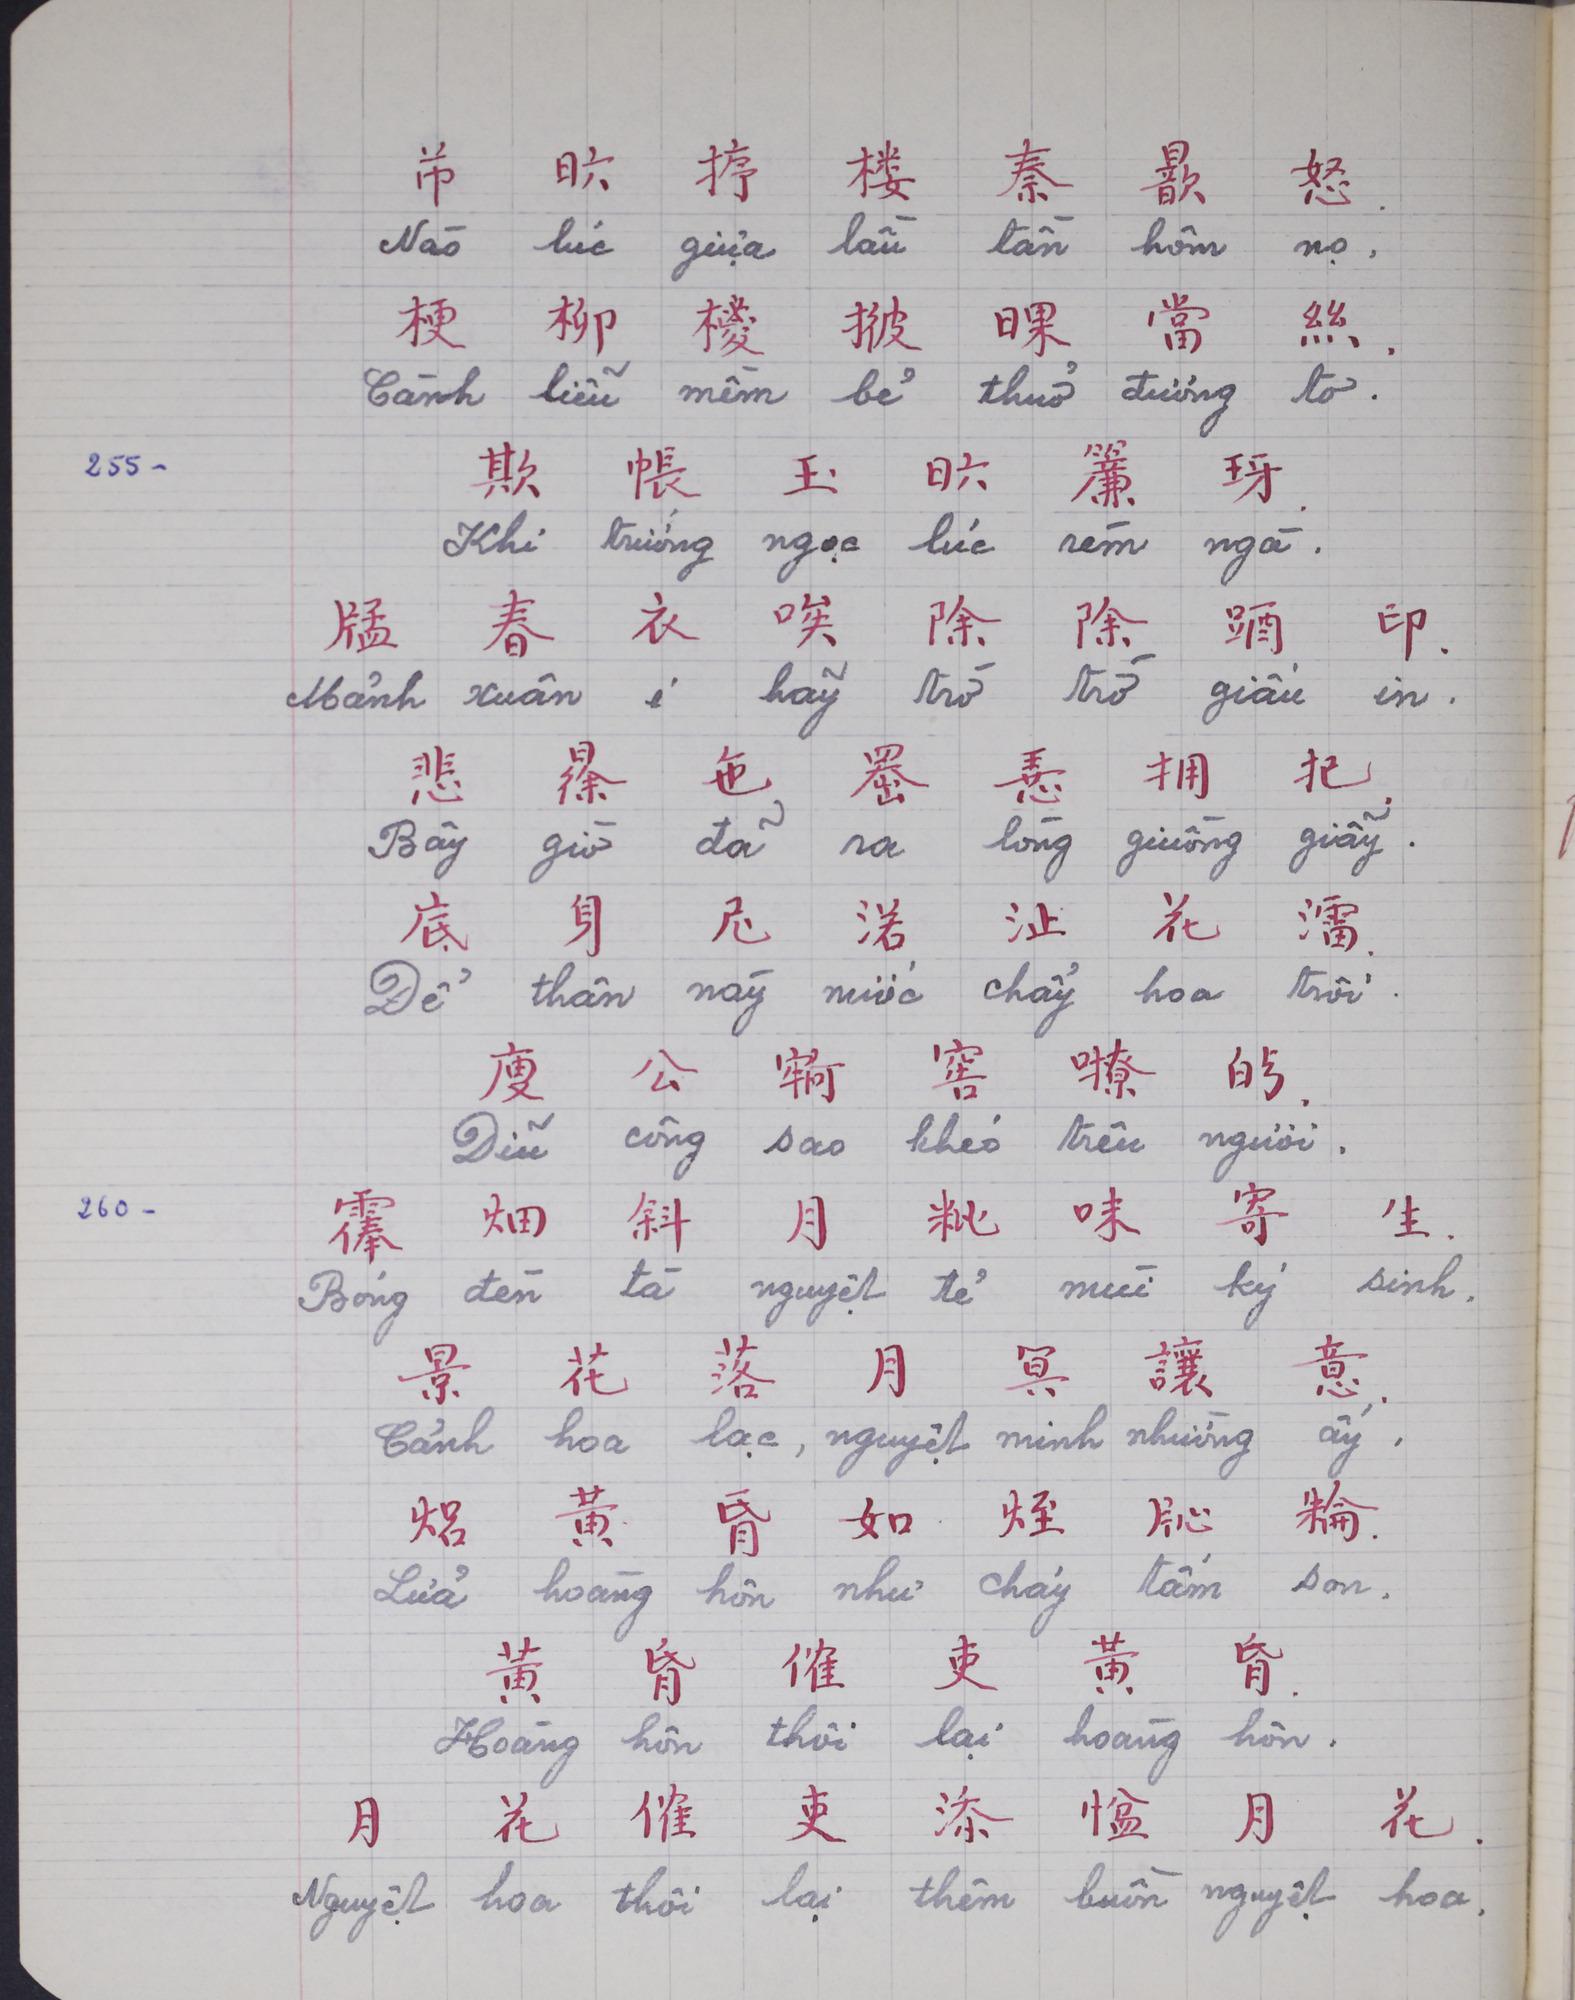 芇 𣅶 㨂 楼 秦 歆 怒.
Nào lúc giữa lầu tần hôm nọ,
梗 柳 㮿 披 㫥 當 絲.
Cành liễu mềm bẻ thuở đương tơ.
255-
欺 帳 玉 𣅶 簾 玡.
Khi trướng ngọc lúc rèm ngà.
牓 春 衣 唉 除 除 𨁪 印.
Mảnh xuân i hãy trờ trờ giấu in.
悲 𣇞 㐌 𠚢 𢚸 拥 把.
Bây giờ đã ra lòng giuồng giẫy.
底 身 尼 渃 沚 花 㵢.
Để thân này nước chảy hoa trôi.
廋 公 𡫡 窖 嘹 𠊚.
Diễu công sao khéo trêu người.
260-
䨦 畑 斜 月 粃 味 寄 生.
Bóng đèn tà nguyệt tẻ mùi ký sinh.
景 花 落 月 冥 讓 意.
Cảnh hoa lạc, nguyệt minh nhường ấy,
焒 黃 昏 如 𤈜 𬌓 𣘈.
Lửa hoàng hôn như cháy tấm son.
黃 昏 催 吏 黃 昏.
Hoàng hôn thôi lại hoàng hôn.
月 花 催 吏 添 㥪 月 花.
Nguyệt hoa thôi lại thêm buồn nguyệt hoa.